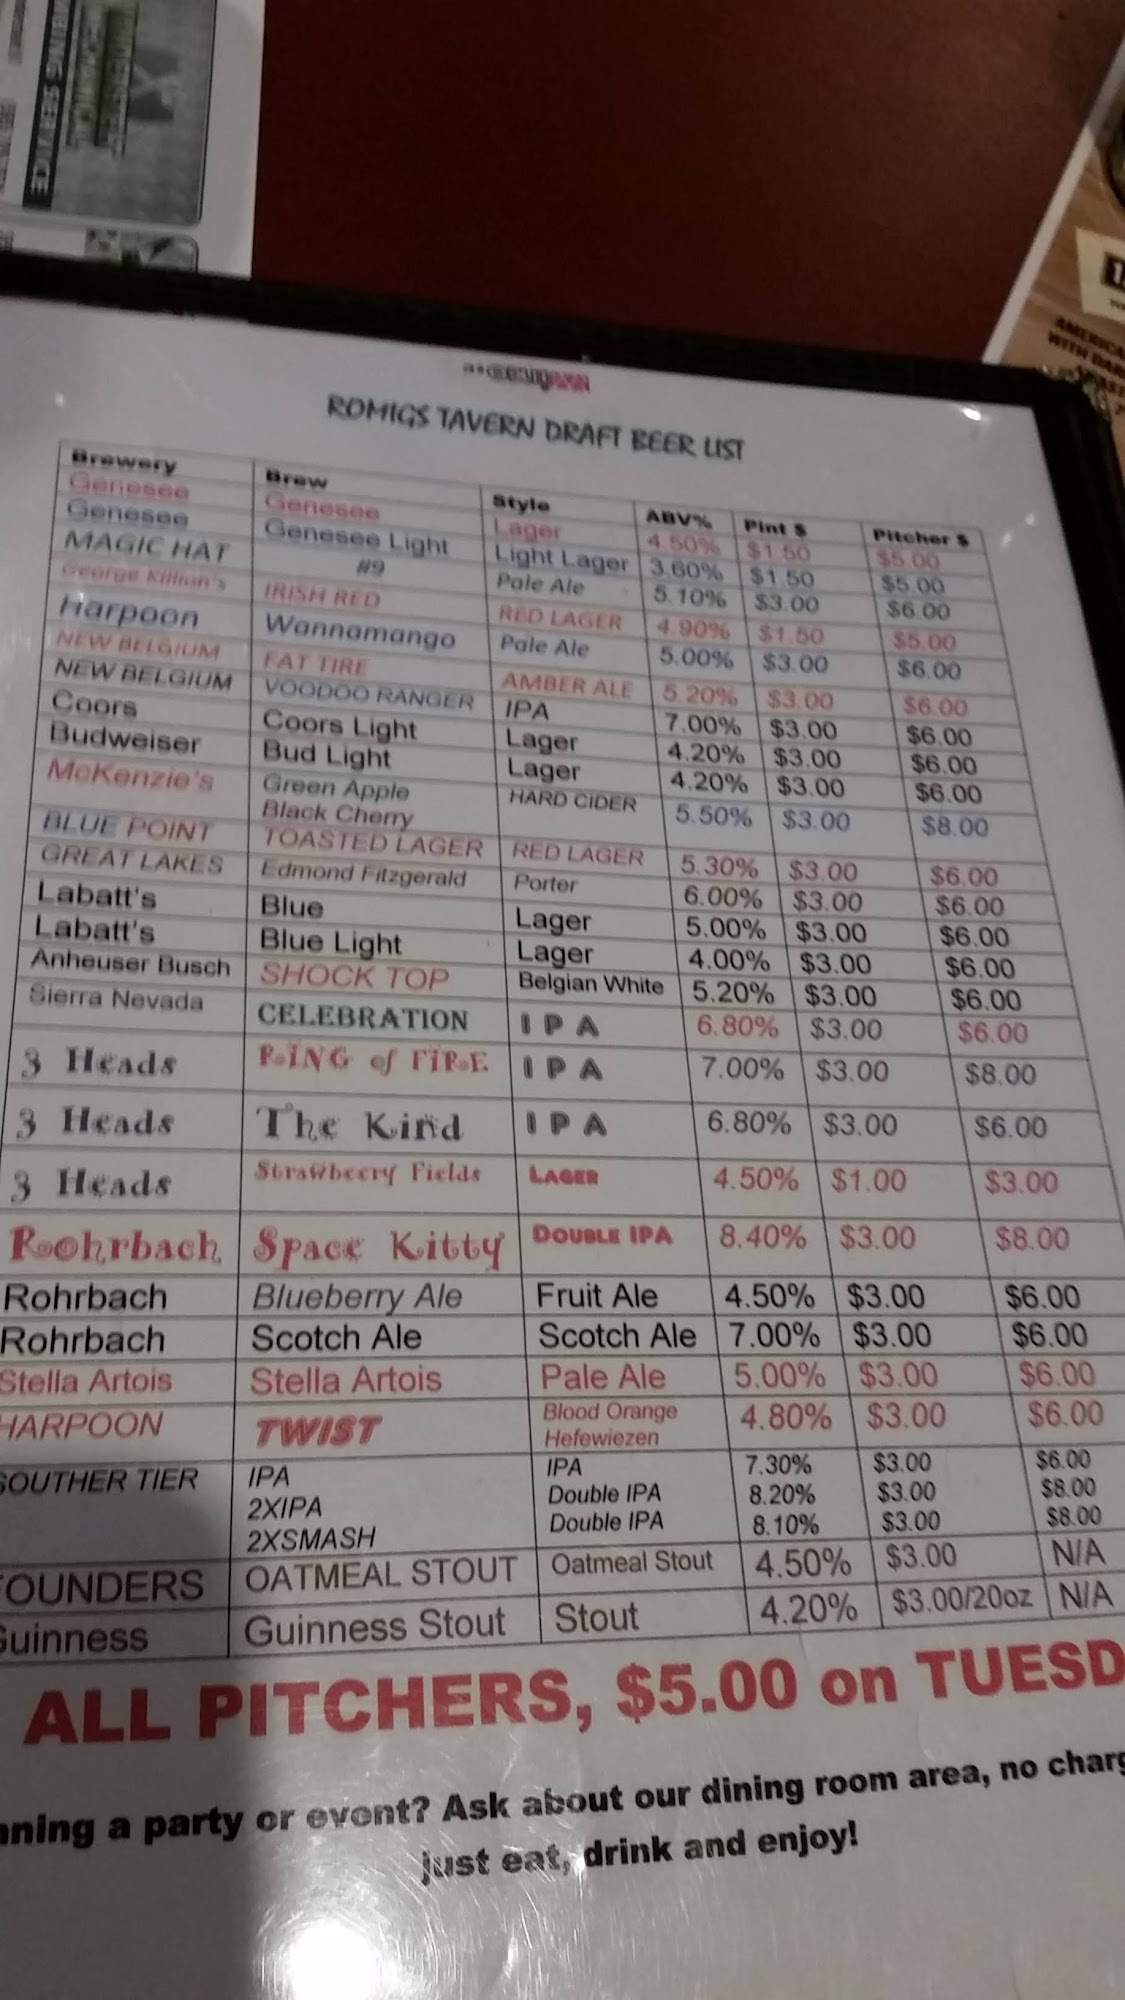 SAVINGS SERVICE
AMERICA
WITH
ROMIGS TAVERN DRAFT BEER LIST
Brewery Brew Style ABV% Pint $ Pitcher $
Genesee Genesee Lager 4.50% $1.50 $5.00
Genesee Genesee Light Light Lager 3.60% $1.50 $5.00
MAGIC HAT #9 Pale Ale 5.10% $3.00 $6.00
George Killian's IRISH RED RED LAGER 4.90% $1.50 $5.00
Harpoon Wannamango Pale Ale 5.00% $3.00 $6.00
NEW BELGIUM FAT TIRE AMBER ALE 5.20% $3.00 $6.00
NEW BELGIUM VOODOO RANGER IPA 7.00% $3.00 $6.00
Coors Coors Light Lager 4.20% $3.00 $6.00
Budweiser Bud Light Lager 4.20% $3.00 $6.00
McKenzie's Green Apple HARD CIDER 5.50% $3.00 $8.00
Black Cherry
BLUE POINT TOASTED LAGER RED LAGER 5.30% $3.00 $6.00
GREAT LAKES Edmond Fitzgerald Porter 6.00% $3.00 $6.00
Labatt's Blue Lager 5.00% $3.00 $6.00
Labatt's Blue Light Lager 4.00% $3.00 $6.00
Anheuser Busch SHOCK TOP Belgian White 5.20% $3.00 $6.00
Sierra Nevada CELEBRATION IPA 6.80% $3.00 $6.00
3 Heads RING of FIRE IPA 7.00% $3.00 $8.00
3 Heads The Kind IPA 6.80% $3.00 $6.00
3 Heads Strawbeery Fields LAGER 4.50% $1.00 $3.00
Rohrbach Space Kitty DOUBLE IPA 8.40% $3.00 $8.00
Rohrbach Blueberry Ale Fruit Ale 4.50% $3.00 $6.00
Rohrbach Scotch Ale Scotch Ale 7.00% $3.00 $6.00
Stella Artois Stella Artois Pale Ale 5.00% $3.00 $6.00
HARPOON TWIST Blood Orange 4.80% $3.00 $6.00
Hefewiezen
SOUTHER TIER IPA IPA 7.30% $3.00 $6.00
2XIPA Double IPA 8.20% $3.00 $8.00
2XSMASH Double IPA 8.10% $3.00 $8.00
FOUNDERS OATMEAL STOUT Oatmeal Stout 4.50% $3.00 N/A
Guinness Guinness Stout Stout 4.20% $3.00/20oz N/A
ALL PITCHERS, $5.00 on TUESD
nning a party or event? Ask about our dining room area, no charg
just eat, drink and enjoy!